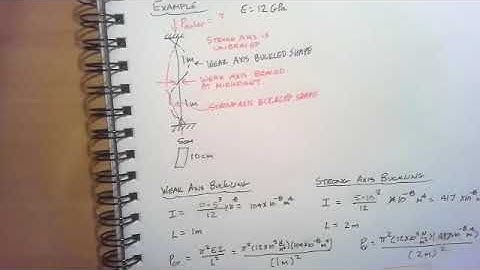 EXAMPLE E=12 GPa
P = ?
STRONG AXIS IS
UNBRACED
1m
WEAK AXIS BUCKLED SHAPE
WEAK AXIS BRACED
AT MIDHEIGHT
1m
BUCKLED SHAPE
5cm
10cm
WEAK AXIS BUCKLING
I = 10·5³/12 ×10⁻⁸ = 104×10⁻⁸ m⁴
L = 1m
Pcr = π²EI/L² = π²(12×10⁹ N/m²)(104×10⁻⁸ m⁴)/(1m)²
STRONG AXIS BUCKLING
I = 5·10³/12 ×10⁻⁸ m⁴ = 417×10⁻⁸ m⁴
L = 2m
Pcr = π²(12×10⁹ N/m²)(417×10⁻⁸ m⁴)/(2m)²